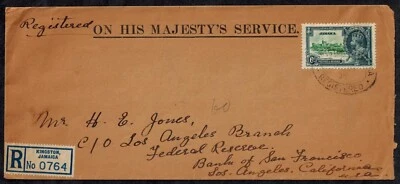 Registered
ON HIS MAJESTY'S SERVICE.
JAMAICA
Mr. H. E. Jones,
C/O Los Angeles Branch
Federal Reserve
Bank of San Francisco
Los. Angeles. California
U.S.A
R
KINGSTON,
JAMAICA
No 0764